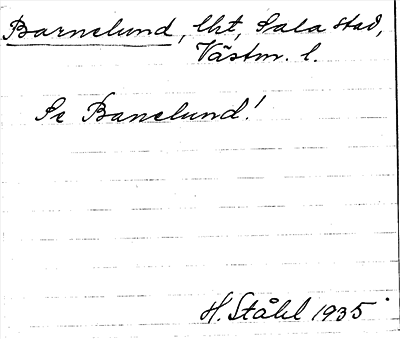 Barnelund, lht, Sala stad,
Västm. l.
Se Banelund!
H. Ståhl 1935